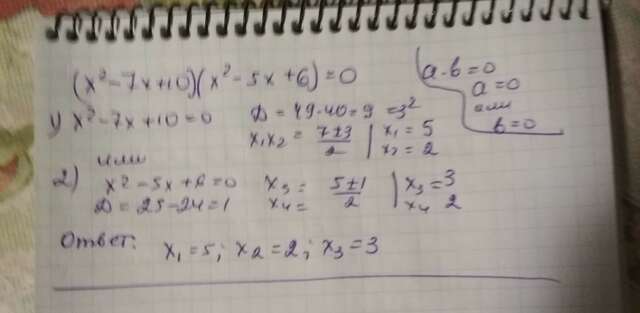 (x²-7x+10)(x²-5x+6)=0
a·b=0
a=0
или
b=0
1) x²-7x+10=0 D=49-40=9=3²
x₁x₂= 7±3/2 | x₁=5
x₂=2
или
2) x²-5x+6=0 x₃= 5±1/2 | x₃=3
D=25-24=1 x₄= x₄ 2
Ответ: x₁=5; x₂=2; x₃=3